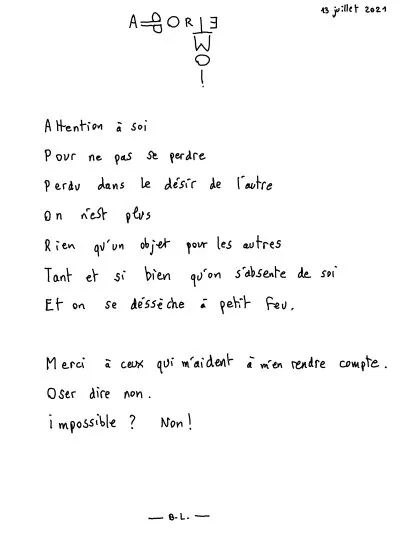 13 juillet 2021
APPORTE
M
O
i
Attention à soi
Pour ne pas se perdre
Perdu dans le désir de l'autre
On n'est plus
Rien qu'un objet pour les autres
Tant et si bien qu'on s'absente de soi
Et on se déssèche à petit feu.
Merci à ceux qui m'aident à m'en rendre compte.
Oser dire non.
impossible ? Non !
— B.L. —